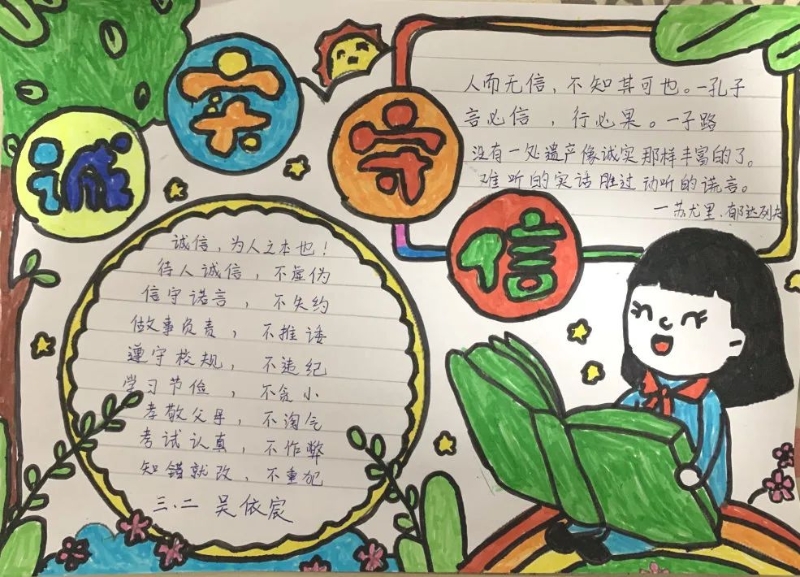 诚实守信
人而无信，不知其可也。一孔子
言必信，行必果。一子路
没有一处遗产像诚实那样丰富的了。
难听的实话胜过动听的谎言。
一苏尤里.郁达列夫
诚信，为人之本也！
待人诚信，不虚伪
信守诺言，不失约
做事负责，不推诿
遵守校规，不违纪
学习节俭，不贪小
孝敬父母，不淘气
考试认真，不作弊
知错就改，不重犯
三.二 吴依宸